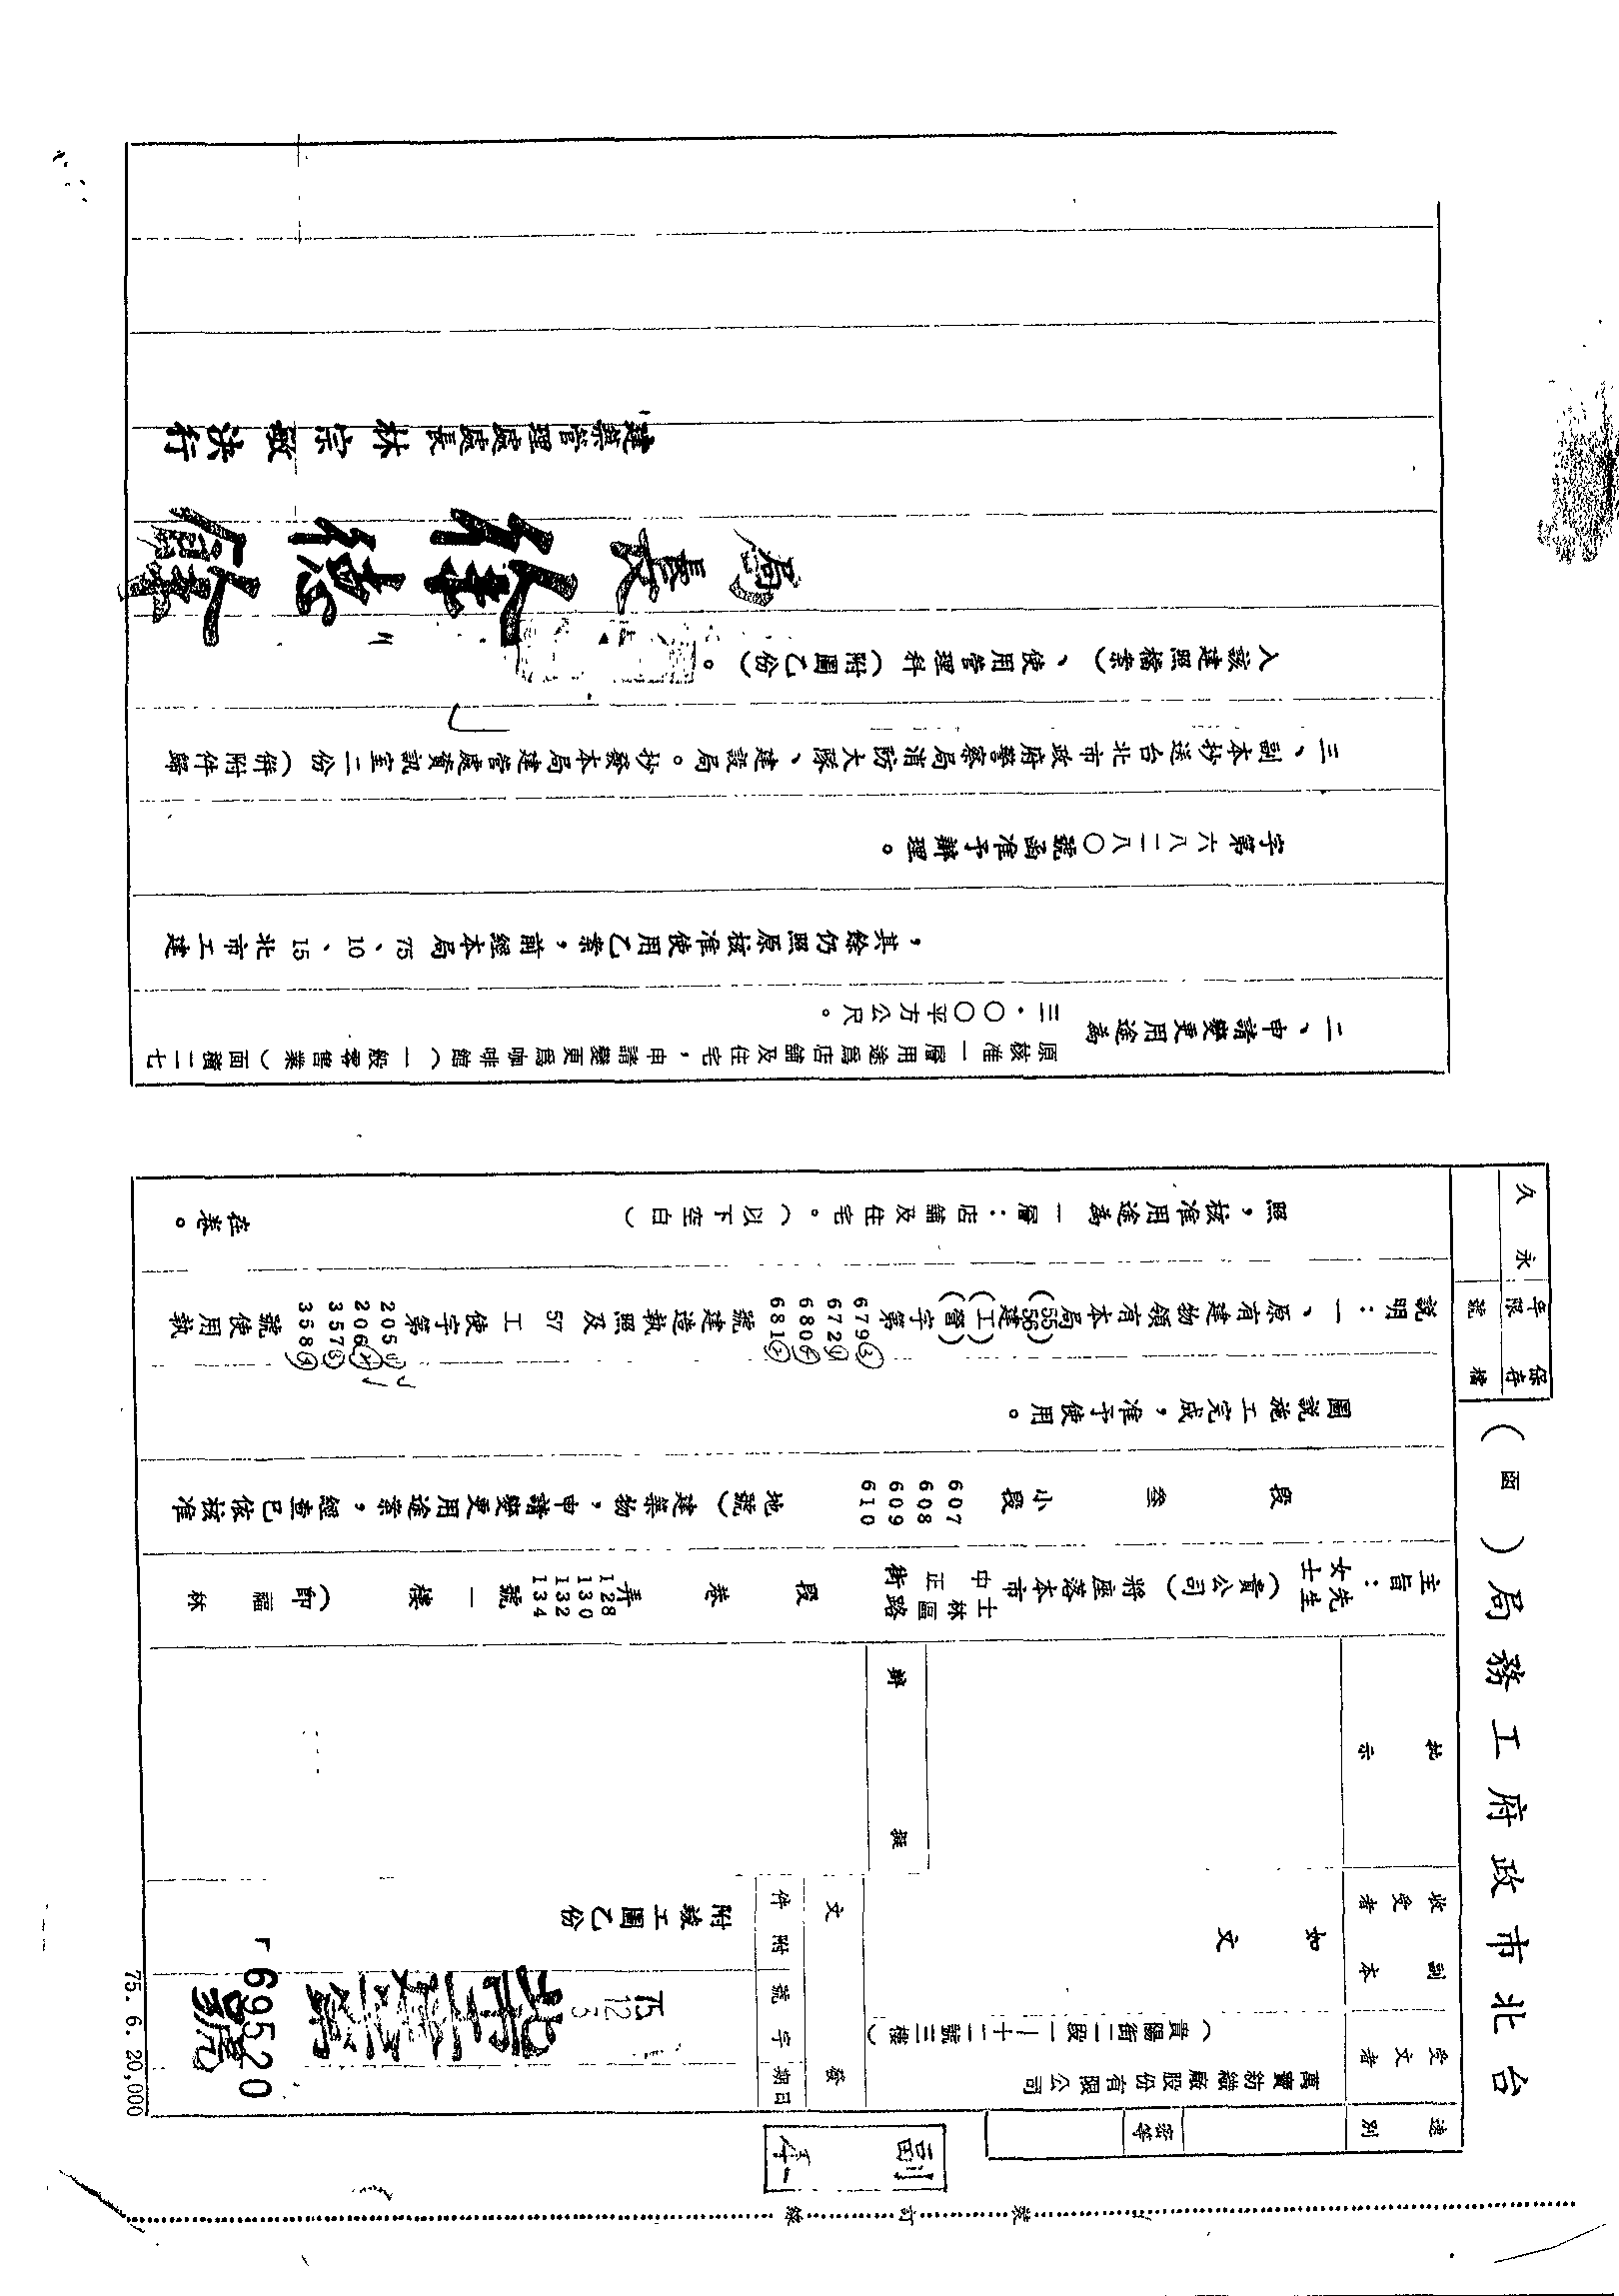 台北市政府工務局（函）
保存年限 永久
檔號
速別
密等
副本
受文者 萬寶紡織廠股份有限公司
（貴陽街二段一|十二號三樓）
副本收受者 如文
批示
擬辦
發文
日期 字號 附件
75 12 3
69520 號
附竣工圖乙份
主旨：先生女士（貴公司）將座落本市士林區中正街路 段 巷 弄 128 130 132 134 號一樓（即福林
段 叁 小段 607 608 609 610 地號）建築物，申請變更用途案，經查已依核准
圖說施工完成，准予使用。
說明：一、原有建物領有本局(55)(56)建(工)(營)字第 679 672 680 681 號建造執照及 57 工使字第 205 206 357 358 號使用執
照，核准用途為一層：店舖及住宅。（以下空白） 在卷。
二、申請變更用途為 原核准一層用途爲店舖及住宅，申請變更爲咖啡館（一般零售業）面積二一七
三．〇〇平方公尺。
，其餘仍照原核准使用乙案，前經本局 75、10、15 北市工建
字第六八二八〇號函准予辦理。
三、副本抄送台北市政府警察局消防大隊、建設局。抄發本局建管處資訊室二份（併附件歸
入該建照檔案）、使用管理科（附圖乙份）。
局長
建築管理處處長林宗敏決行
75. 6. 20,000
裝 訂 線